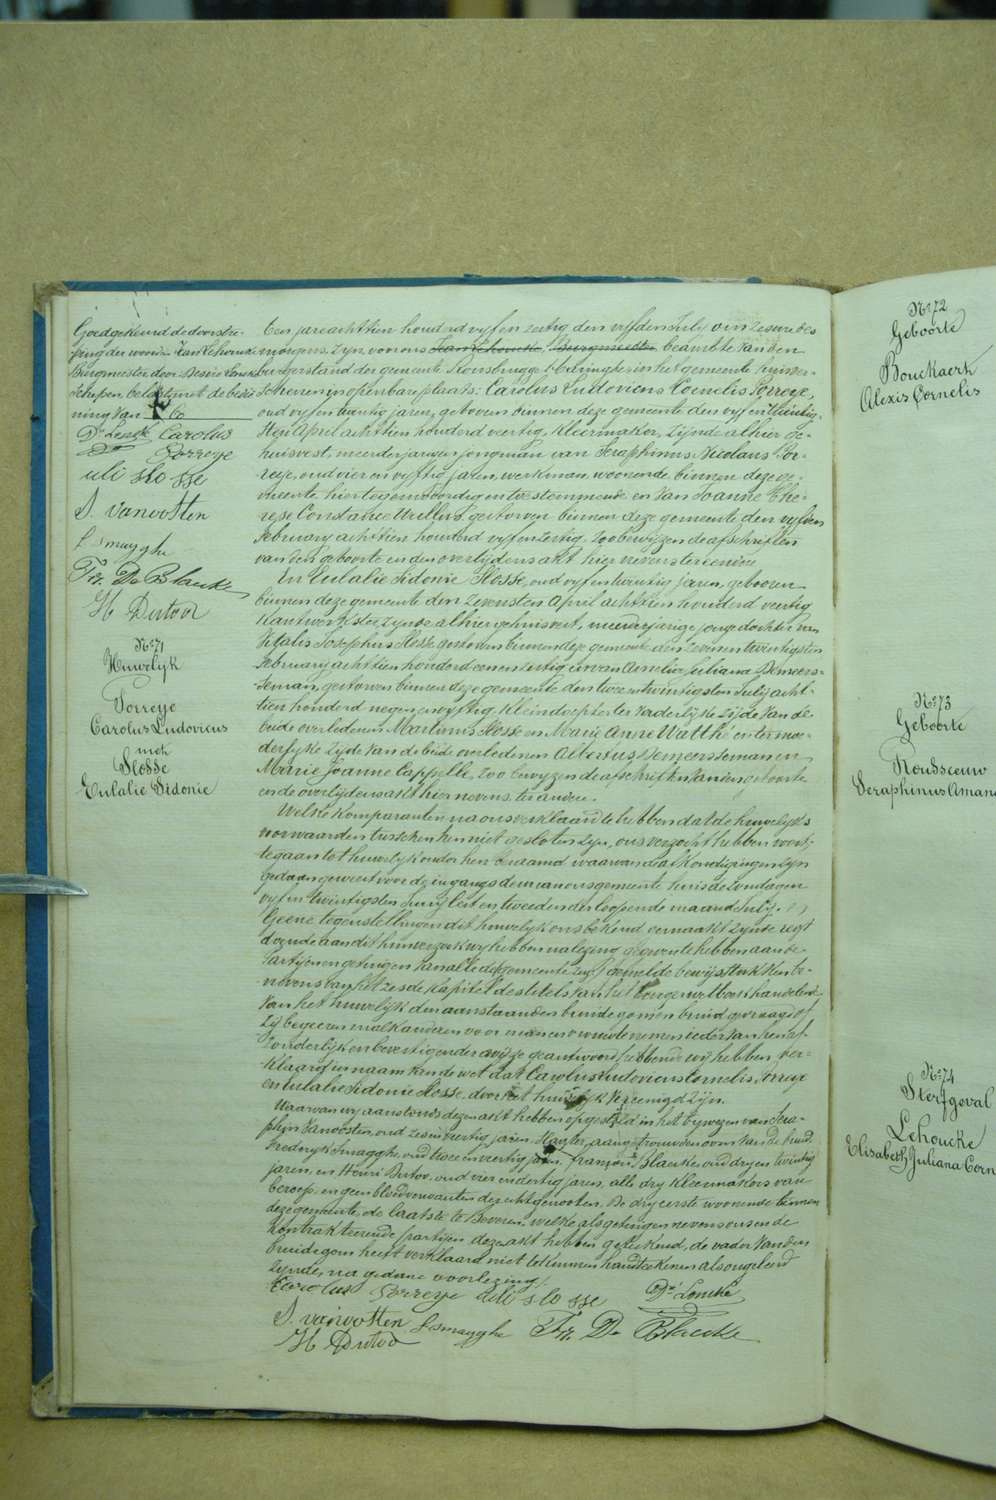 Goedgekeurd de doorstre-
ping der woorden Jan Lehoucke
Burgmeester door Desiré Lonck
Schepen, belast met de bedie
ning van
Ds Loncke Carolus
Sorreye
uli slosse
S. vanootten
f smagghe
Frs. De Blauke
H Dutoo
No 71
Huwelijk
Sorreye
Carolus Ludovicus
met
Slosse
Eulalie Sidonie
Een jare achttien honderd vyf en zestig den vyfden July om zes ure des
morgens, zyn voor ons Jan Lehoucke, Burgmeester beambte van den
burgerstand der gemeente Stavele in het gemeente huis ver-
schenen in openbare plaats: Carolus Ludovicus Cornelis Sorreye,
oud vyf en twintig jaren, geboren binnen deze gemeente den vyf en twintig-
sten April achttien honderd veertig, kleermaker, zynde alhier ge-
huisvest, meerderjarigen jongman van Seraphinus Nicolaus Sor-
reye, oud vier en vyftig jaren, werkman, woonende binnen deze ge-
meente, hier tegenwoordig en toestemmende en van Joanne The-
rese Constance gestorven binnen deze gemeente den vyfden
February achttien honderd vyf en zestig. zoo bewyzen de afschriften
van den geboorte en den overlydens akt hier nevens te annexe
En Eulalie Sidonie Slosse, oud vyf en twintig jaren, geboren
binnen deze gemeente den zevensten April achttien honderd veertig
kantwerkster, zynde alhier gehuisvest, meerderjarige jonge dochter van
Vitalis Josephus Slosse gestorven binnen deze gemeente den zeven en twintigsten
February achttien honderd een en zestig en van Amelie Juliana Demeers-
seman, gestorven binnen deze gemeente den twee en twintigsten July acht-
tien honderd negen en vyftig, kleindochter ter vaderlyke zyde van de
beide overledenen Martinus Slosse en Marie Anne Watthé en ter moe-
derlyke zyde van de beide overledenen Albertus Demeersseman en
Marie Joanne Cappelle, zoo bewyzen de afschriften van den geboorte
en de overlydens akt hier nevens te annexe.
Welke komparanten na ons verklaard te hebben dat de huwelyks
voorwaarden tusschen hen niet gesloten zyn, ons verzocht hebben voort
te gaan tot huwelyk onder hen beraamd waarvan de afkondigingen zyn
gedaan geweest voor de ingangs deur van ons gemeente huis de zondagen
vyf en twintigsten Juny lest en tweeden der loopende maand July.
Geene tegenstellingen dit huwelyk ons bekend gemaakt zynde regt
doende aan dit hun verzoek wy hebben na lezing gegeven te hebben aan de
partyen en getuigen van alle de gemelde bewysstukken be-
nevens van het zesde kapitel des titels van het burger wetboek handelende
van het huwelyk den aanstaanden bruidegom en bruid gevraagd of
zy begeeren malkanderen voor man en vrouw te nemen ieder van hen af-
zonderlyk en bevestigender wyze geantwoord hebbende wy hebben ver-
klaard in naam van de wet dat Carolus Ludovicus Cornelis Sorreye
en Eulalie Sidonie Slosse, door het huwelyk vereenigd zyn.
Waarvan wy aanstonds dezen akt hebben opgesteld in het bywezen van Sera-
phyn Vanooten, oud zes en veertig jaren, aangetrouwden oom van de bruid
Fredryk Smagghe, oud twee en veertig jaren, françois De Blauke, oud dry en twintig
jaren, en Henri Dutoo, oud vier en dertig jaren, alle dry kleermakers van
beroep, en geen bloedverwanten der echtgenooten. De dry eerste woonende binnen
deze gemeente, de laatste te Beveren, welke als getuigen nevens ons en de
kontrakteerende partyen dezen akt hebben geteekend, de vader van den
bruidegom heeft verklaard niet te kunnen handteekenen als ongeleerd
zynde, na gedane voorlezing.
Carolus Sorreye uli slosse Ds Loncke
S. vanootten f smagghe Frs. De Blauke
H Dutoo
No 72
Geboorte
Bouckaert
Alexis Cornelis
No 73
Geboorte
Rousseeuw
Seraphinus Aman
No 74
Sterfgeval
Lehoucke
Elisabeth Juliana Corn